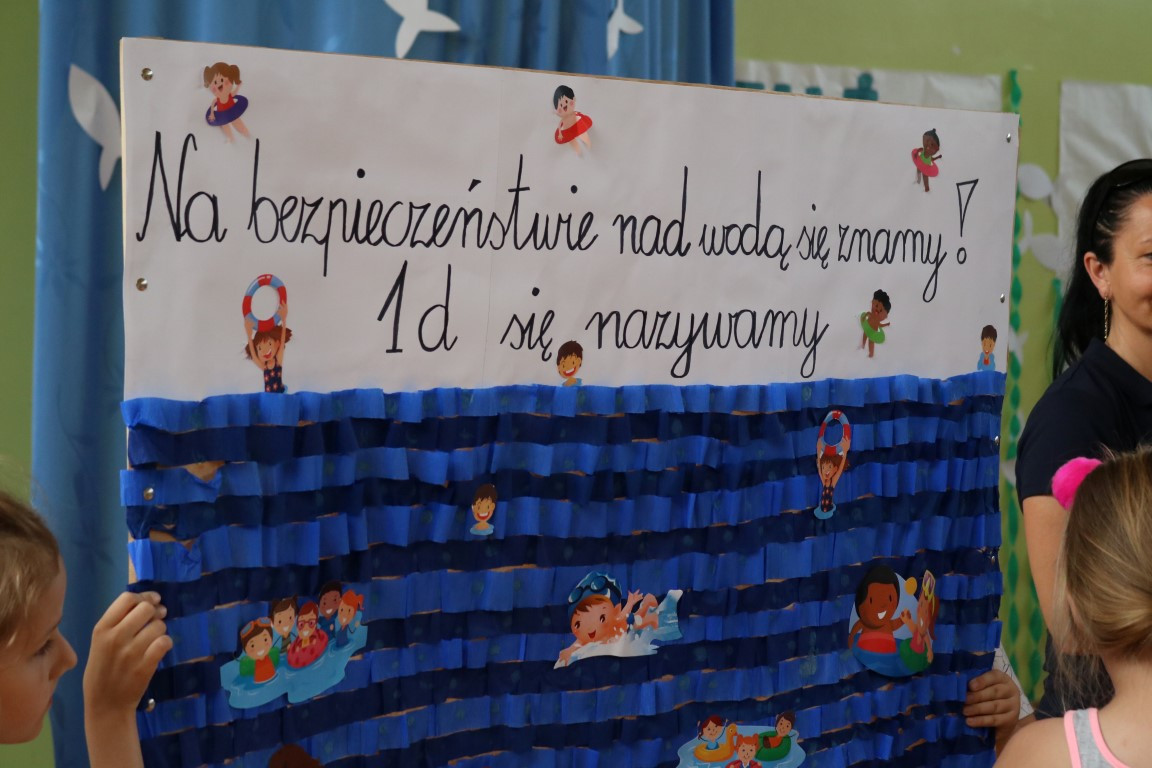 Na bezpieczeństwie nad wodą się znamy!
1d się nazywamy